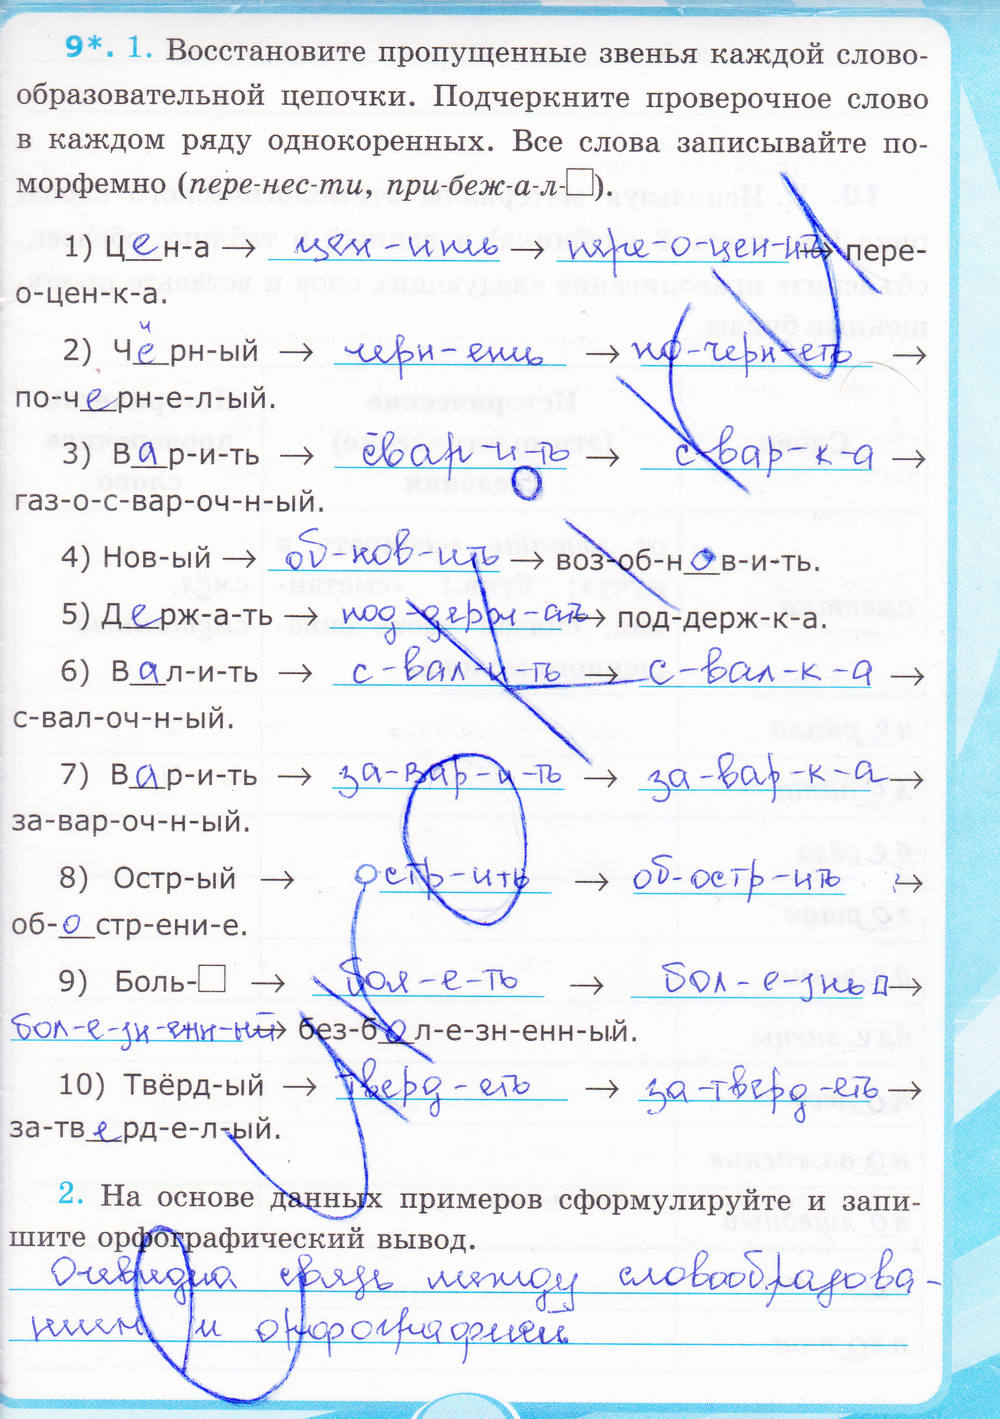 9*. 1. Восстановите пропущенные звенья каждой слово-
образовательной цепочки. Подчеркните проверочное слово
в каждом ряду однокоренных. Все слова записывайте по-
морфемно (пере-нес-ти, при-беж-а-л-□).
1) Цен-а → цен-ить → пере-о-цен-ить → пере-
о-цен-к-а.
2) Чёрн-ый → черн-еть → по-черн-еть →
по-черн-е-л-ый.
3) Вар-и-ть → свар-и-ть → с-вар-к-а →
газ-о-с-вар-оч-н-ый.
4) Нов-ый → об-нов-ить → воз-об-нов-и-ть.
5) Держ-а-ть → под-держ-ать → под-держ-к-а.
6) Вал-и-ть → с-вал-и-ть → с-вал-к-а →
с-вал-оч-н-ый.
7) Вар-и-ть → за-вар-и-ть → за-вар-к-а →
за-вар-оч-н-ый.
8) Остр-ый → остр-ить → об-остр-ить →
об-остр-ени-е.
9) Боль-□ → бол-е-ть → бол-е-знь□ →
бол-е-зн-енн-ый → без-бол-е-зн-енн-ый.
10) Твёрд-ый → тверд-еть → за-тверд-еть →
за-тверд-е-л-ый.
2. На основе данных примеров сформулируйте и запи-
шите орфографический вывод.
Очевидна связь между словообразова-
нием и орфографией.